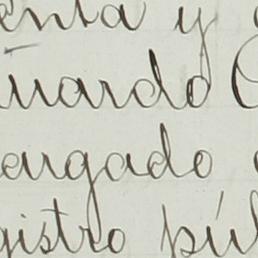 enta y
uardo
argado
gistro púb